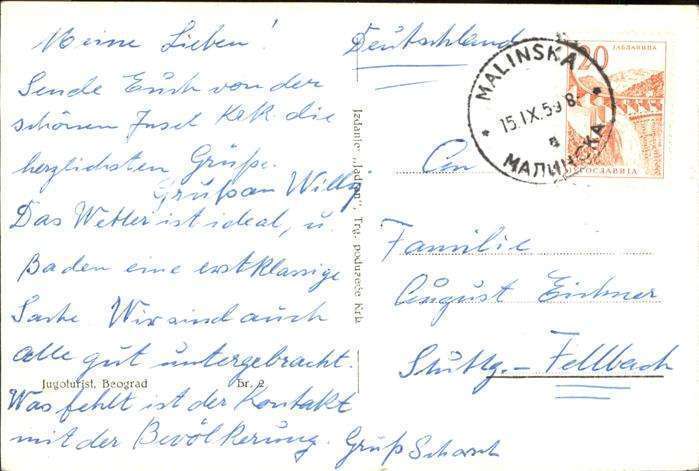 Meine Lieben!
Sende Euch von der
schönen Insel Krk die
herzlichsten Grüße.
Gruß an Willy
Das Wetter ist ideal, u.
Baden eine erstklassige
Sache Wir sind auch
alle gut untergebracht.
Was fehlt ist der Kontakt
mit der Bevölkerung. Gruß
Jugoturist, Beograd Br. 2
Izdanje: „Jadran“, Trg. poduzeće Krk
Deutschland
An
Familie
August Eichner
Stuttg.-Fellbach
MALINSKA
15.IX.59 8
МАЛИНСКА
20
ЈАБЛАНИЦА
ЈУГОСЛАВИЈА